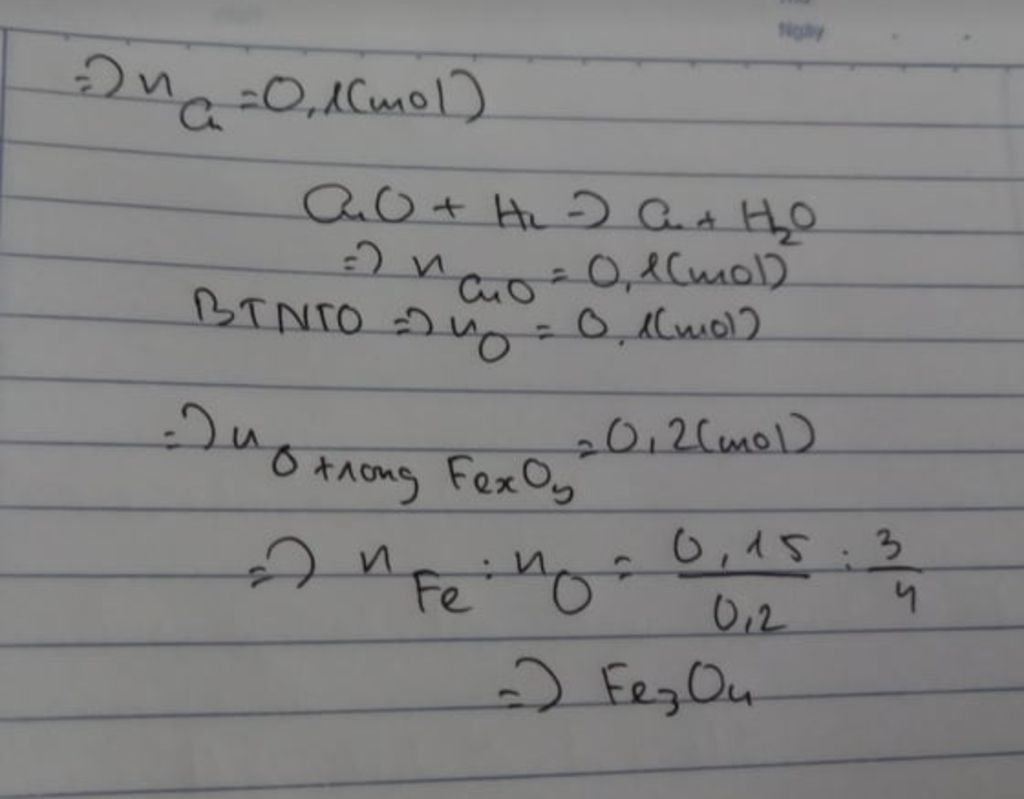 Ngày
=> n Cu = 0,1(mol)
CuO + H2 => Cu + H2O
=> n CuO = 0,1(mol)
BTNTO => n O = 0,1(mol)
=> n O trong FexOy = 0,2(mol)
=> n Fe : n O = 0,15/0,2 : 3/4
=> Fe3O4